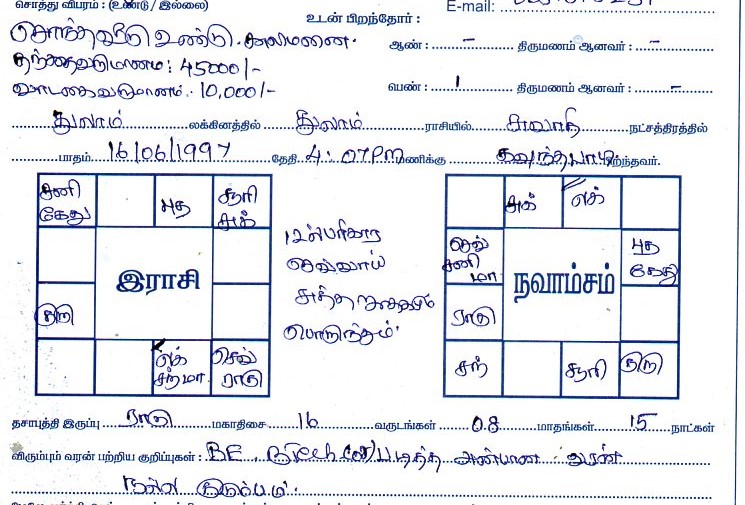 சொத்து விபரம் : (உண்டு / இல்லை)
E-mail:
உடன் பிறந்தோர் :
சொந்தவீடு உண்டு. காலிமனை.
ஆண் : – திருமணம் ஆனவர் : –
தந்தைவருமானம் : 45000/-
வாடகைவருமானம். 10,000/-
பெண் : 1 திருமணம் ஆனவர் : –
துலாம் லக்கினத்தில் துலாம் ராசியில் சுவாதி நட்சத்திரத்தில்
மாதம் 16/06/1997 தேதி 4:07PM மணிக்கு பிறந்தவர்.
சனி கேது
புத
சூரி சுக்
இராசி
குரு
லக் சந் மா
செவ் ராகு
12ல் பரிகார
செவ்வாய்
சுத்த
பொருந்தும்.
சுக்
லக்
செவ் சனி மா
புத கேது
நவாம்சம்
ராகு
சந்
சூரி
குரு
தசாபுத்தி இருப்பு ராகு மகாதிசை 16 வருடங்கள் 08 மாதங்கள் 15 நாட்கள்
விரும்பும் வரன் பற்றிய குறிப்புகள் : BE, B.Tech படித்த அன்பான வரன்
நல்ல குடும்பம்.